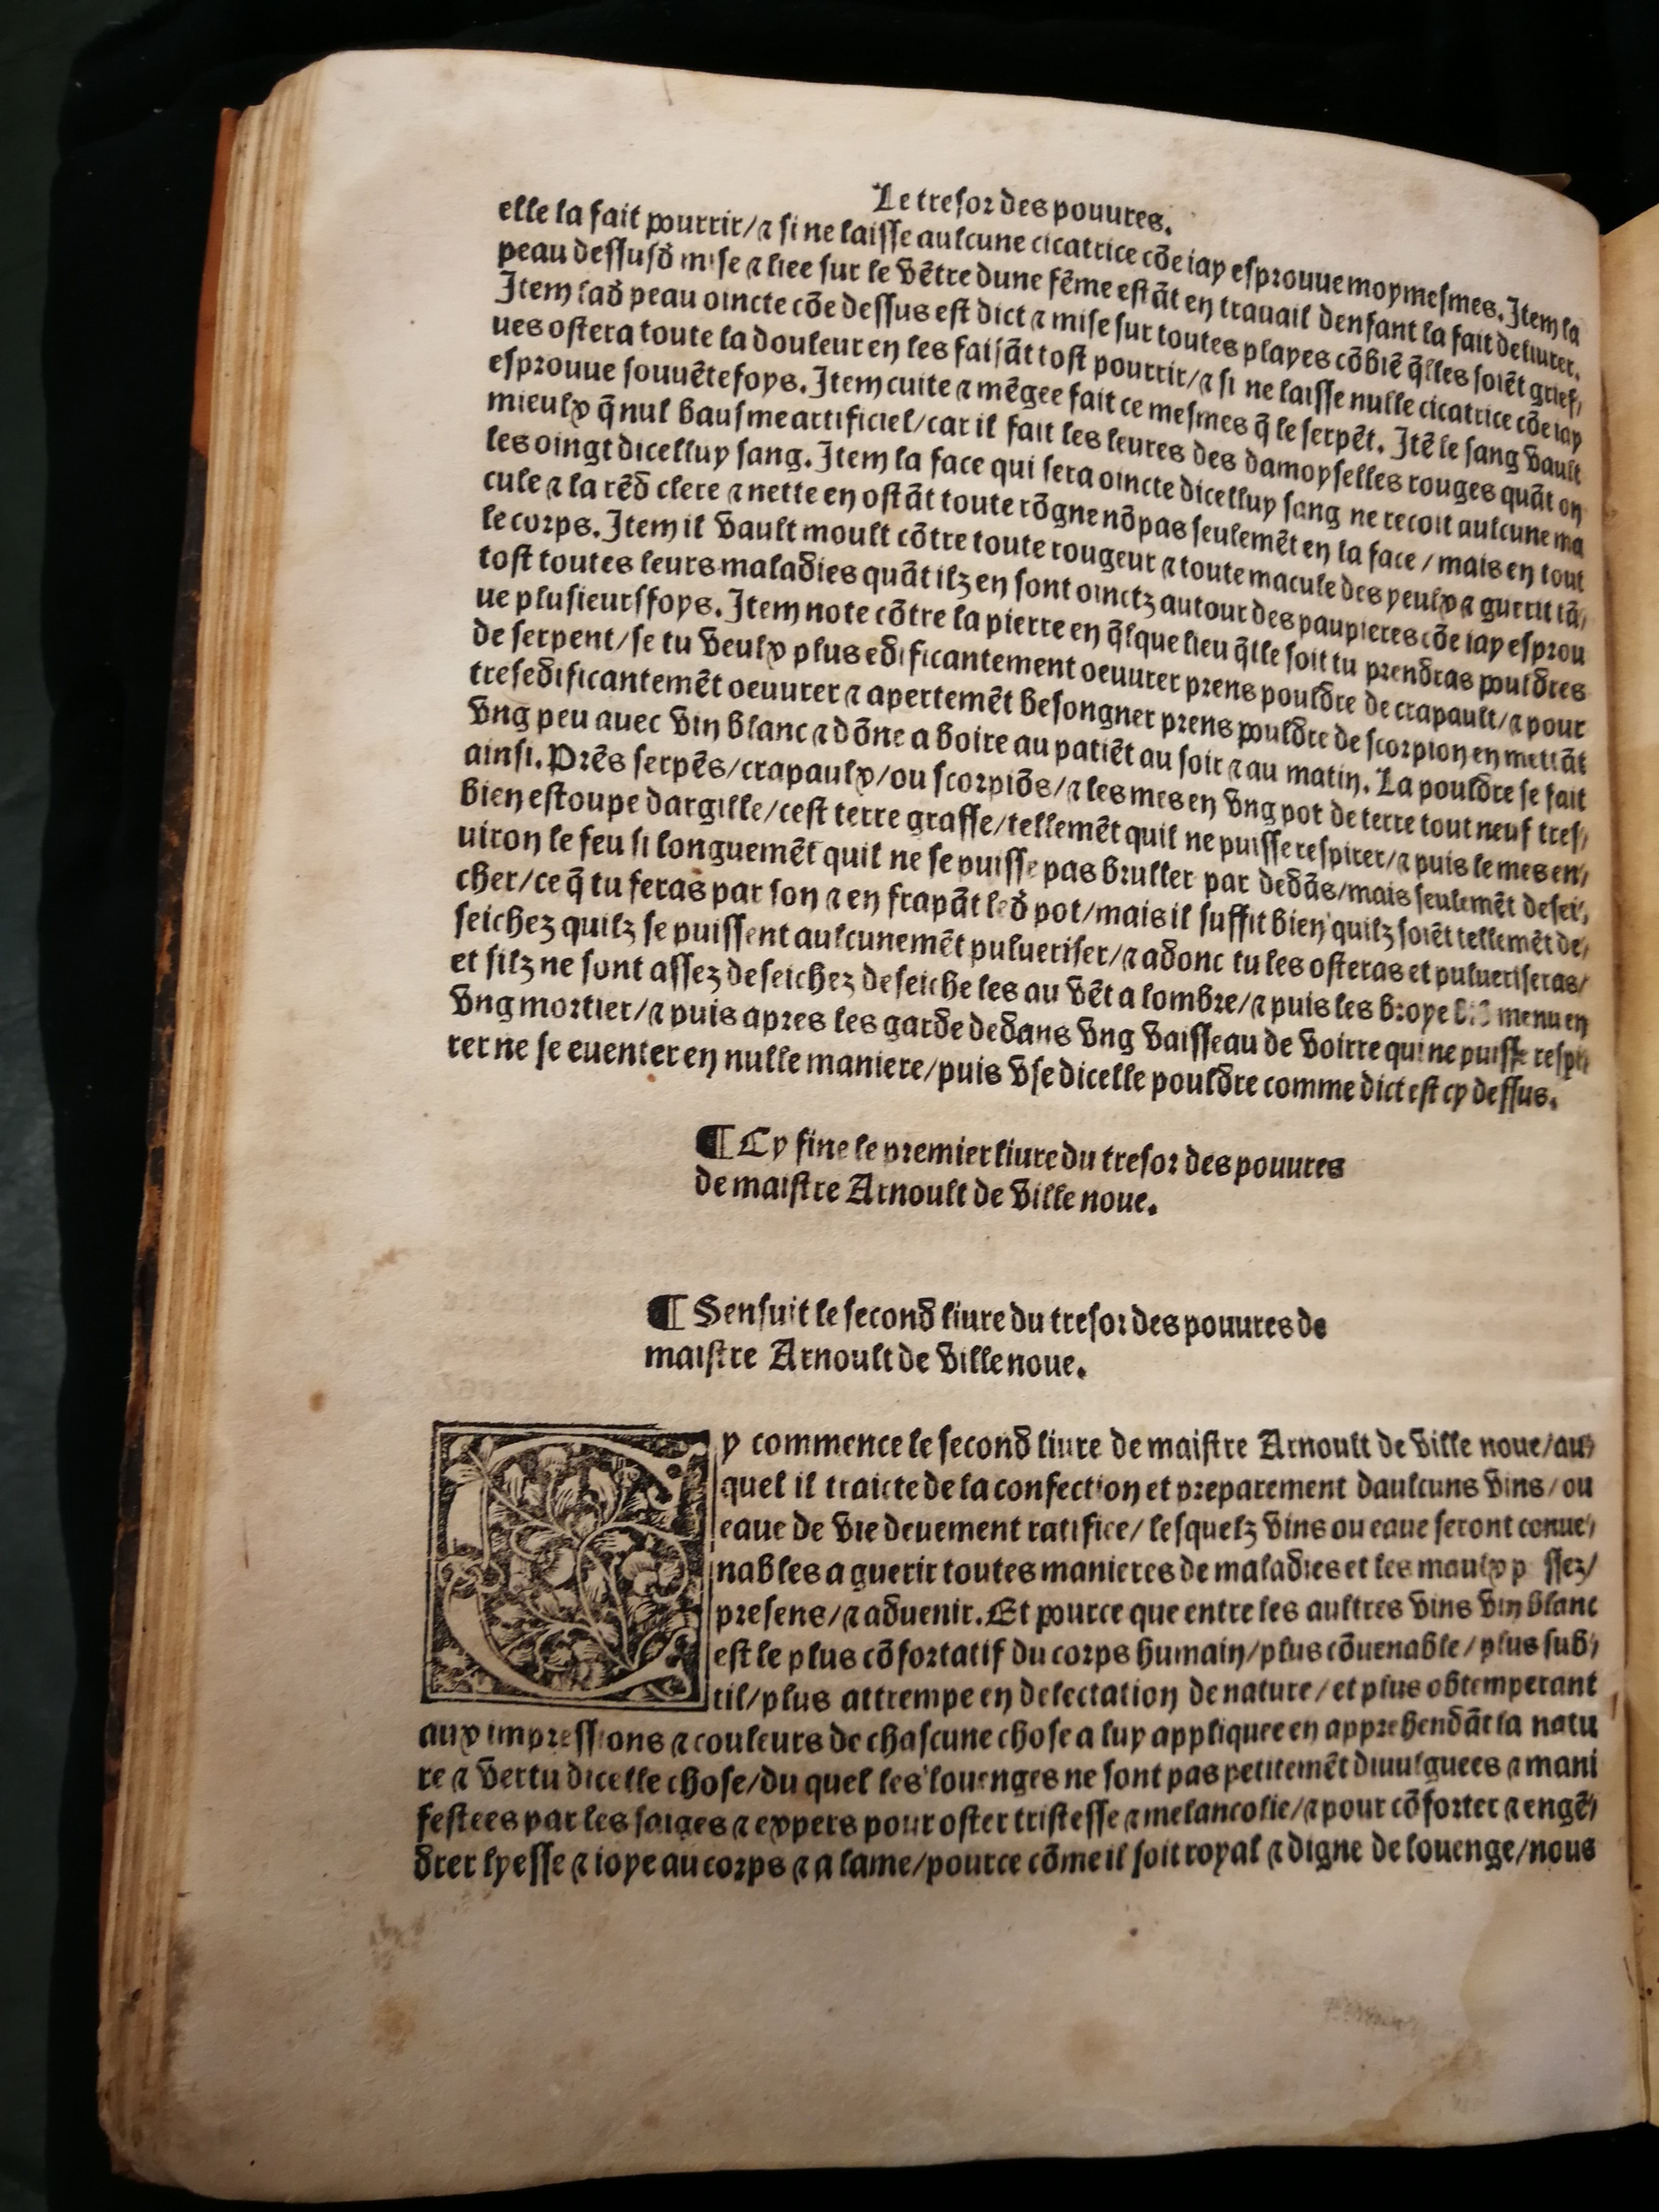 Le tresor des pouures.
elle la fait pourrir/⁊ si ne laisse aulcune cicatrice cõe iay esprouue moymesmes. Item la
peau dessusd̉ mise ⁊ liee sur le vẽtre dune fẽme estãt en trauail denfant la fait deliurer.
Item lad̉ peau oincte cõe dessus est dict ⁊ mise sur toutes playes cõbiẽ q̃lles soiẽt grief/
ues ostera toute la douleur en les faisãt tost pourrir/⁊ si ne laisse nulle cicatrice cõe iay
esprouue souuẽtefoys. Item cuite ⁊ mẽgee fait ce mesmes q̃ le serpẽt. Itẽ le sang vault
mieulx q̃ nul bausme artificiel/car il fait les leures des damoyselles rouges quãt on
les oingt dicelluy sang. Item la face qui sera oincte dicelluy sang ne recoit aulcune ma
cule ⁊ la rẽd clere ⁊ nette en ostãt toute rõgne nõpas seulemẽt en la face / mais en tout
le corps. Item il vault moult cõtre toute rougeur ⁊ toute macule des yeulx ⁊ guerit tã/
tost toutes leurs maladies quãt ilz en sont oinctz autour des paupieres cõe iay esprou
ue plusieurs foys. Item note cõtre la pierre en q̃lque lieu q̃lle soit tu prendras pouldres
de serpent/se tu veulx plus edificantement oeuurer prens pouldre de crapault/⁊ pour
tresedificantemẽt oeuurer ⁊ apertemẽt besongner prens pouldre de scorpion en mettãt
vng peu auec vin blanc ⁊ dõne a boire au patiẽt au soir ⁊ au matin. La pouldre se fait
ainsi. Prẽs serpẽs/crapaulx/ou scorpiõs/⁊ les mes en vng pot de terre tout neuf tres/
bien estoupe dargille/cest terre grasse/tellemẽt quil ne puisse respirer/⁊ puis le mes en/
uiron le feu si longuemẽt quil ne se puisse pas bruller par dedãs/mais seulemẽt desei/
cher/ce q̃ tu feras par son ⁊ en frapãt led̉ pot/mais il suffit bien quilz soiẽt tellemẽt de/
seichez quilz se puissent aulcunemẽt pulueriser/⁊ adonc tu les osteras et pulueriseras/
et silz ne sont assez deseichez deseiche les au vẽt a lombre/⁊ puis les broye menu en
vng mortier/⁊ puis apres les garde dedans vng vaisseau de voirre qui ne puisse respi/
rer ne se euenter en nulle maniere/puis vse dicelle pouldre comme dict est cy dessus.
¶ Cy fine le premier liure du tresor des pouures
de maistre Arnoult de Ville noue.
¶ Sensuit le second liure du tresor des pouures de
maistre Arnoult de Ville noue.
Cy commence le second liure de maistre Arnoult de Ville noue/au/
quel il traicte de la confection et preparement daulcuns vins/ou
eaue de vie deuement ratifice/ lesquelz vins ou eaue seront conue/
nables a guerir toutes manieres de maladies et les maulx p ssez/
presens/⁊ aduenir. Et pource que entre les aultres vins vin blanc
est le plus cõfortatif du corps humain/plus cõuenable/plus sub/
til/plus attrempe en delectation de nature/et plus obtemperant
aux impressions ⁊ couleurs de chascune chose a luy appliquee en apprehendãt la natu
re ⁊ vertu dicelle chose/du quel les louenges ne sont pas petitemẽt diuulguees ⁊ mani
festees par les saiges ⁊ expers pour oster tristesse ⁊ melancolie/⁊ pour cõforter ⁊ engẽ/
drer lyesse ⁊ ioye au corps ⁊ a lame/pource cõme il soit royal ⁊ digne de louenge/nous